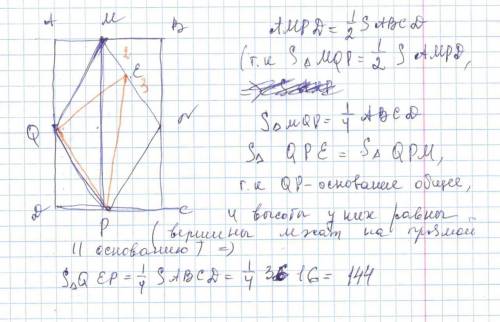 A M B
AMPD = 1/2 SABCD
(т.к S△ MQP = 1/2 S AMPD,
E
Q N
S△ MQP = 1/4 ABCD
S△ QPE = S△ QPM,
т.к QP-основание общее,
Д P C
и высоты у них равны
(вершины лежат на прямой
|| основанию) =>
S△Q EP = 1/4 SABCD = 1/4 36 16 = 144